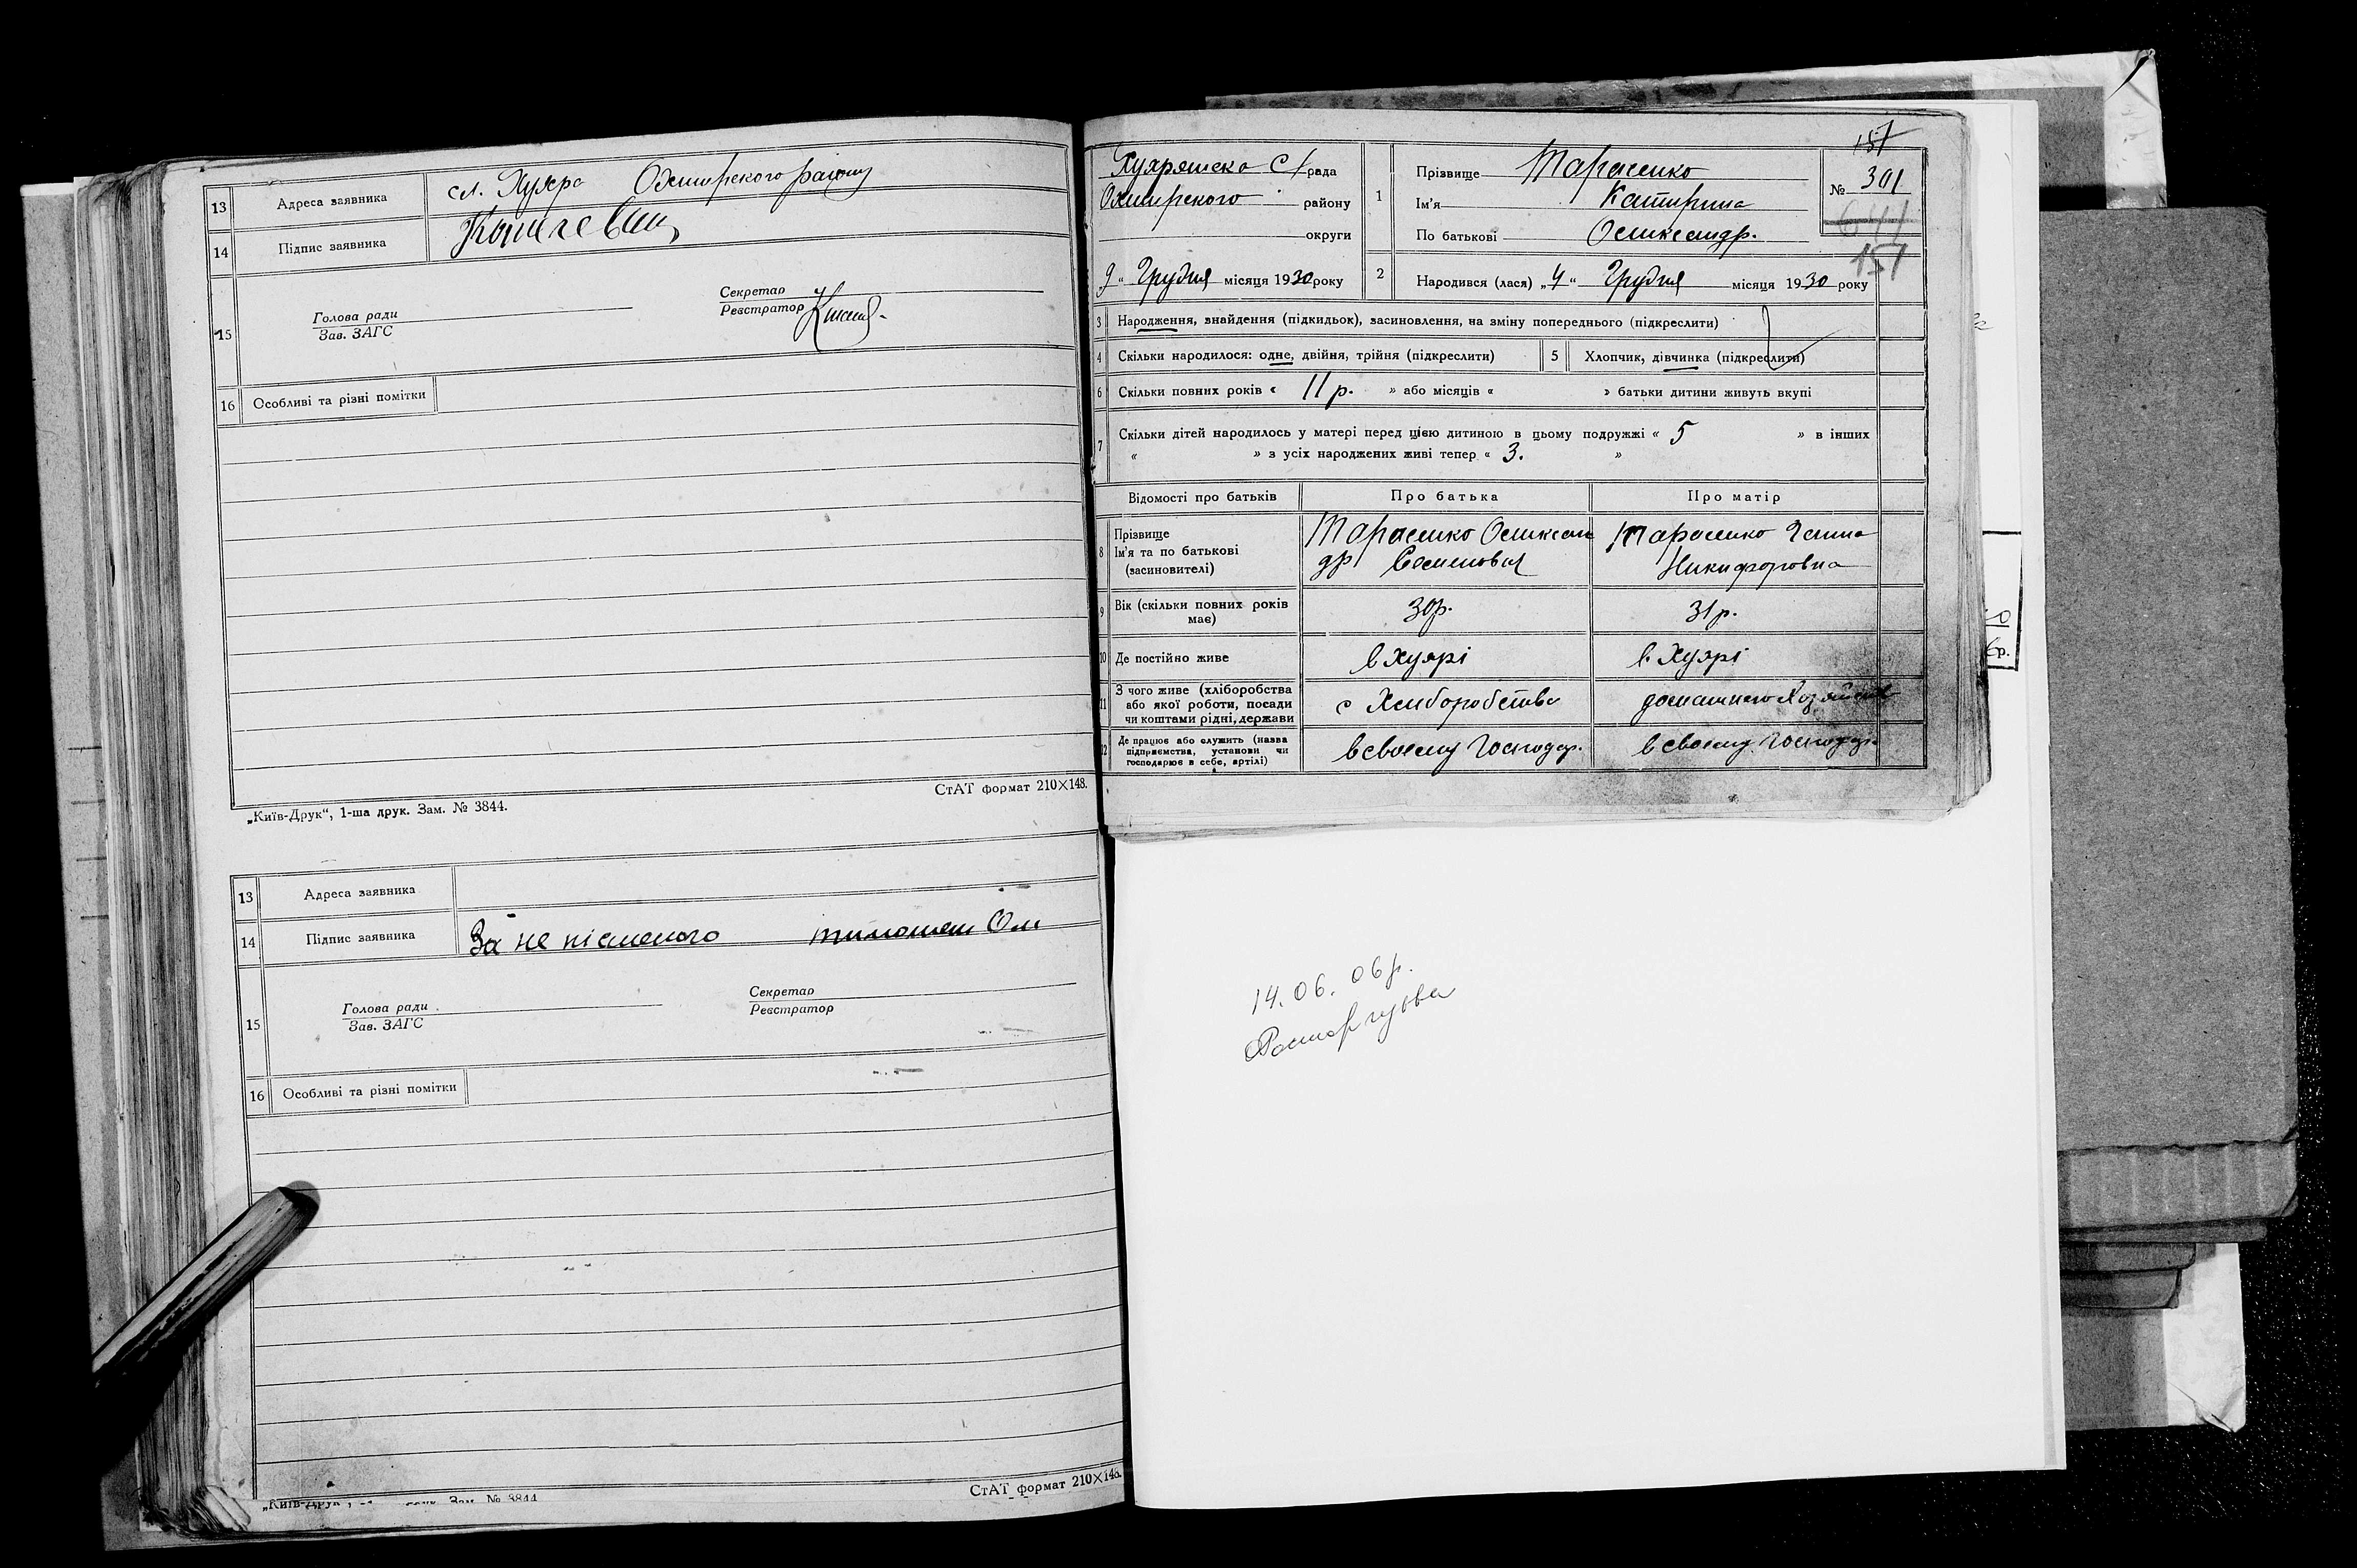 13 Адреса заявника сл. Хухра Охтирского району
14 Підпис заявника
15 Голова ради
Зав. ЗАГС
Секретар
Реєстратор
16 Особливі та різні помітки
„Київ-Друк“, 1-ша друк. Зам. № 3844.
СтАТ формат 210×148.
13 Адреса заявника
14 Підпис заявника За не písменого
15 Голова ради
Зав. ЗАГС
Секретар
Реєстратор
16 Особливі та різні помітки
„Київ-Друк“, Зам. № 3844
СтАТ формат 210×148.
157
рада
Охтирского району
округи
9 “ Грудня місяця 1930 року
1 Прізвище Тарасенко
Ім'я Катирина
По батькові Олександр.
№ 301
641
151
2 Народився (лася) „4“ Грудня місяця 1930 року
3 Народження, знайдення (підкидьок), засиновлення, на зміну попереднього (підкреслити)
4 Скільки народилося: одне, двійня, трійня (підкреслити)
5 Хлопчик, дівчинка (підкреслити)
6 Скільки повних років « 11 р. » або місяців « » батьки дитини живуть вкупі
7 Скільки дітей народилось у матері перед цією дитиною в цьому подружжі « 5 » в інших
« » з усіх народжених живі тепер « 3. »
Відомості про батьків Про батька Про матір
8 Прізвище
Ім'я та по батькові
(засновителі)
Тарасенко Олексан
др Семенович
Тарасенко Ганна
Никифоровна
9 Вік (скільки повних років
має)
30р.
31р.
10 Де постійно живе
в Хухрі
в Хухрі
11 З чого живе (хліборобства
або якої роботи, посади
чи коштами рідні, держави
с Хліборобства
домашнего
12 Де працює або служить (назва
підприємства, установи чи
господарює в себе, артілі)
в своему Господар.
в своему Господар.
14.06.06р.